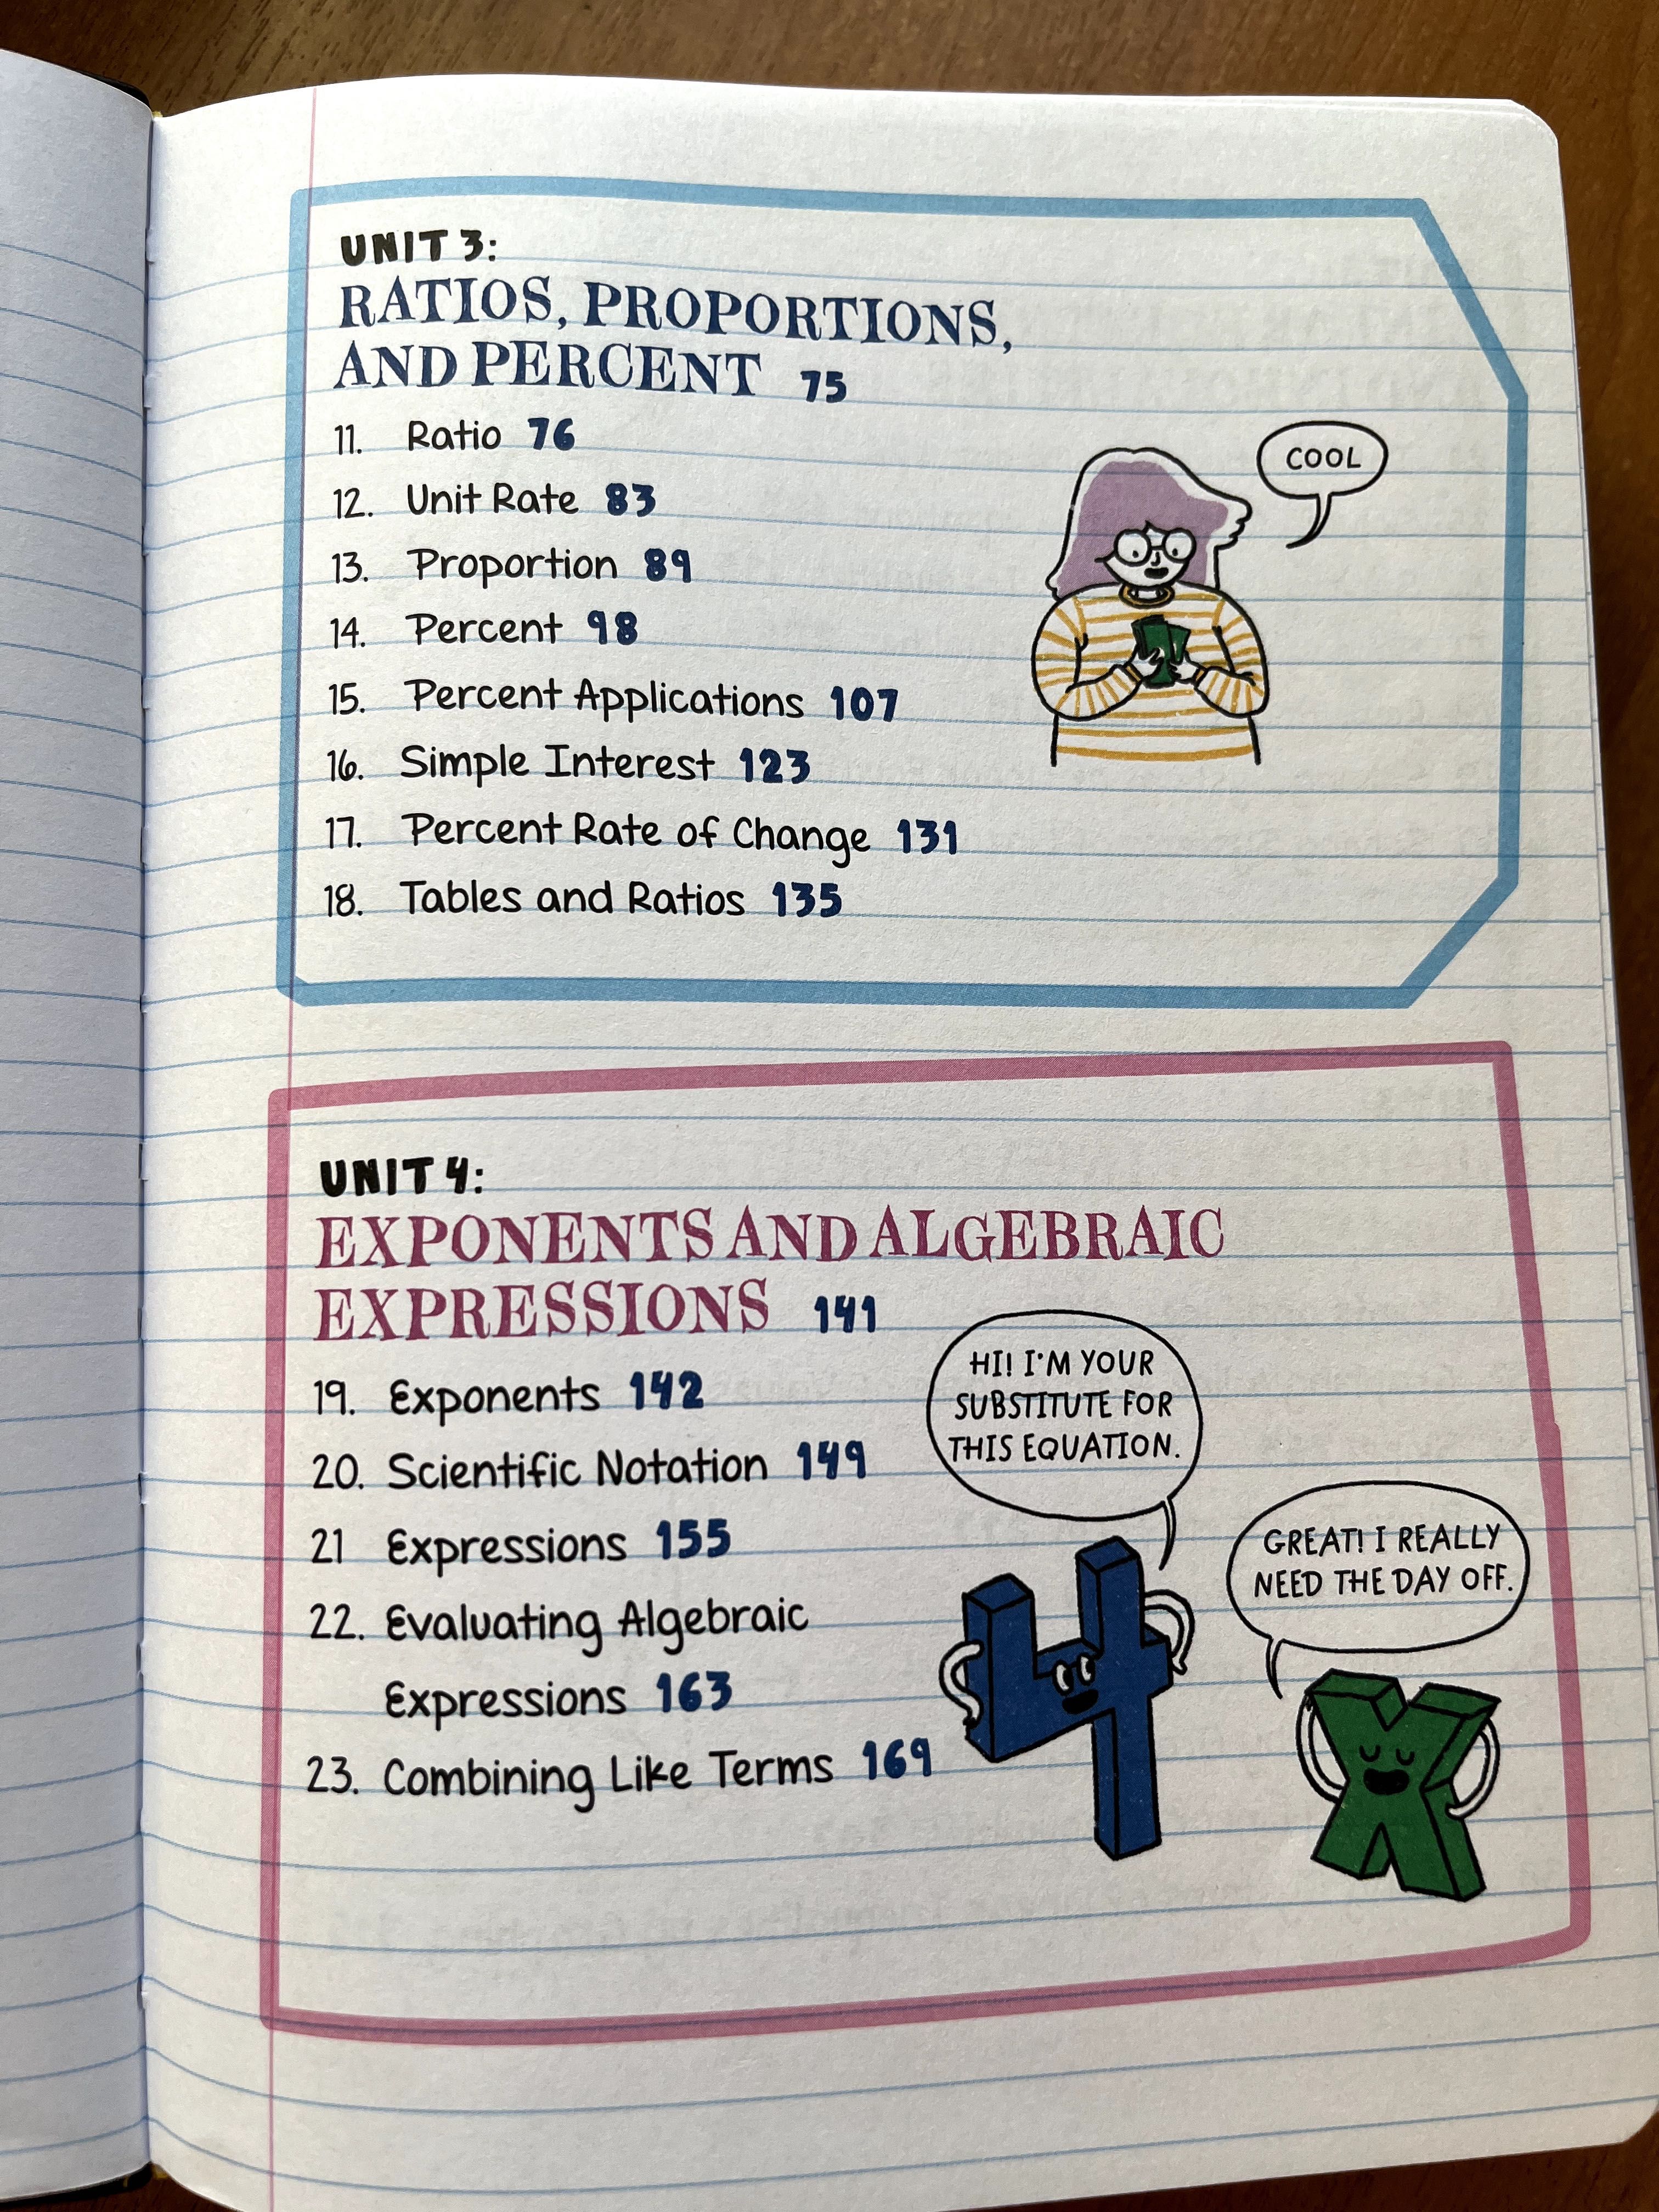 UNIT 3:
RATIOS, PROPORTIONS,
AND PERCENT 75
11. Ratio 76
12. Unit Rate 83
13. Proportion 89
14. Percent 98
15. Percent Applications 107
16. Simple Interest 123
17. Percent Rate of Change 131
18. Tables and Ratios 135
COOL
UNIT 4:
EXPONENTS AND ALGEBRAIC
EXPRESSIONS 141
19. Exponents 142
20. Scientific Notation 149
21 Expressions 155
22. Evaluating Algebraic
Expressions 163
23. Combining Like Terms 169
HI! I'M YOUR
SUBSTITUTE FOR
THIS EQUATION.
GREAT! I REALLY
NEED THE DAY OFF.
4
X